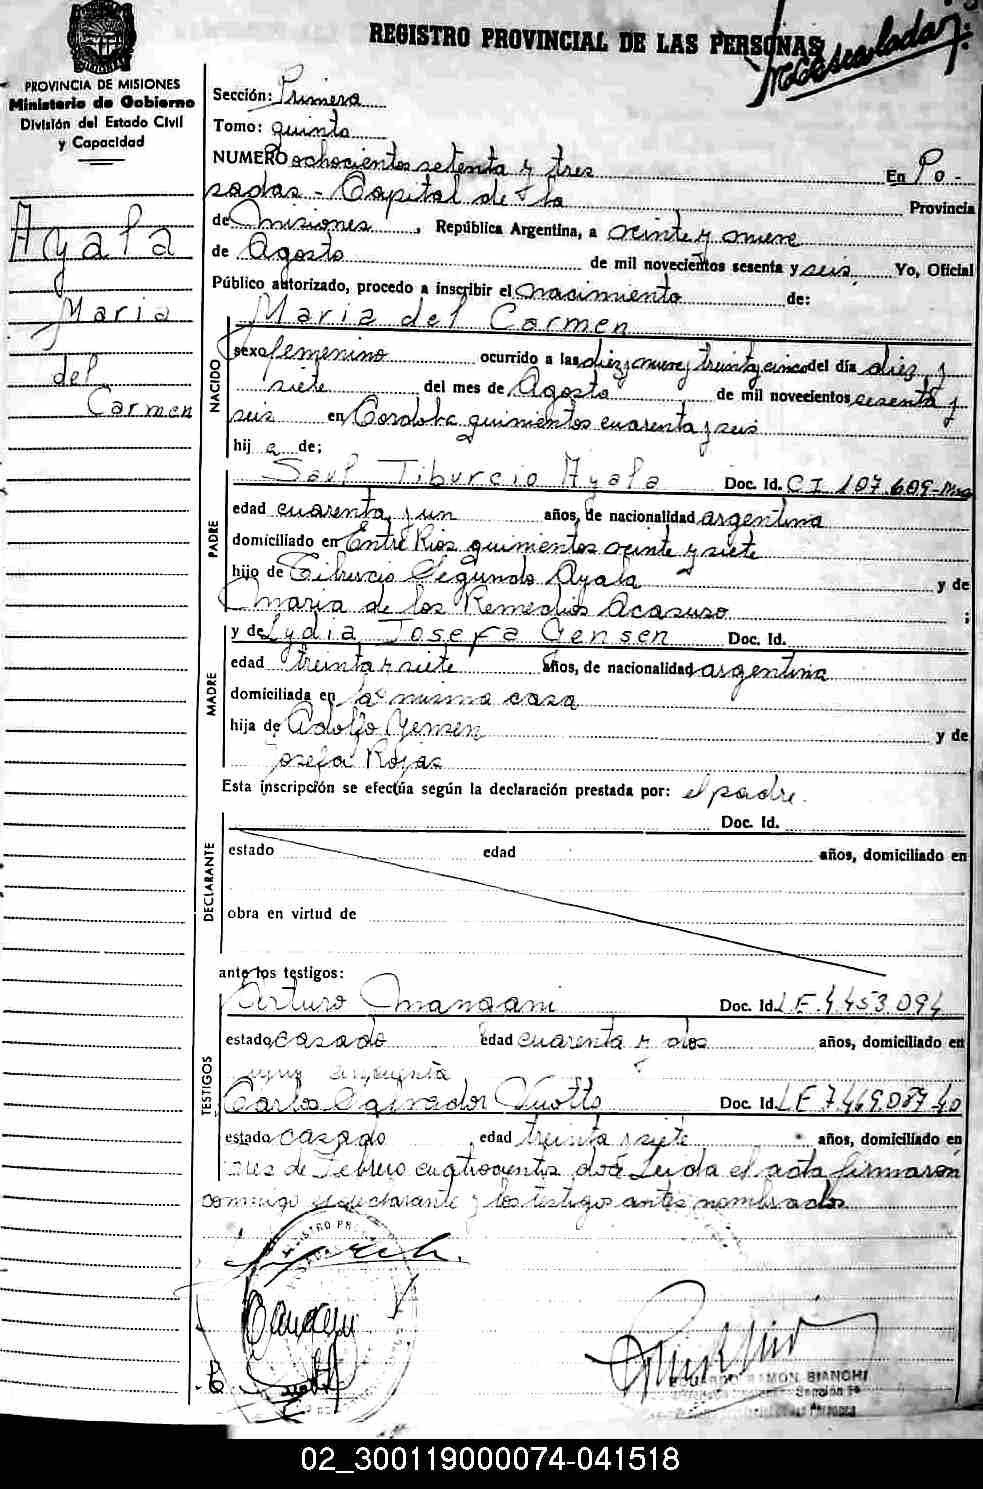 REGISTRO PROVINCIAL DE LAS PERSONAS
PROVINCIA DE MISIONES
Ministerio de Gobierno
División del Estado Civil
y Capacidad
Ayala
Maria
del
Carmen
Sección: Primera
Tomo: quinto
NUMERO ochocientos setenta y tres En Po-
sadas - Capital de la Provincia
de Misiones, República Argentina, a veinte y nueve
de Agosto de mil novecientos sesenta y seis Yo, Oficial
Público autorizado, procedo a inscribir el nacimiento de:
NACIDO
Maria del Carmen
sexo femenino ocurrido a las diez y nueve y treinta y cinco del día diez y
siete del mes de Agosto de mil novecientos sesenta y
seis en Cordoba quinientos cuarenta y seis
hij a de:
PADRE
Saul Tiburcio Ayala Doc. Id. CI 107.609-
edad cuarenta y un años, de nacionalidad argentina
domiciliado en Entre Rios quinientos veinte y siete
hijo de Tiburcio Segundo Ayala y de
Maria de los Remedios Acasuso ;
MADRE
y de Lydia Josefa Jensen Doc. Id.
edad treinta y siete años, de nacionalidad argentina
domiciliada en la misma casa
hija de Adolfo Jensen y de
Josefa Rojas
Esta inscripción se efectúa según la declaración prestada por: el padre.
DECLARANTE
Doc. Id.
estado edad años, domiciliado en
obra en virtud de
ante los testigos:
TESTIGOS
Arturo Doc. Id. LE. 4.453.094
estado casado edad cuarenta y dos años, domiciliado en
Carlos Salvador Doc. Id. LE 7.469.087
estado casado edad treinta y siete años, domiciliado en
Tres de Febrero cuatrocientos doce Leida el acta firmaron
conmigo el declarante y los testigos antes nombrados
RAMON BIANCHI
02_300119000074-041518